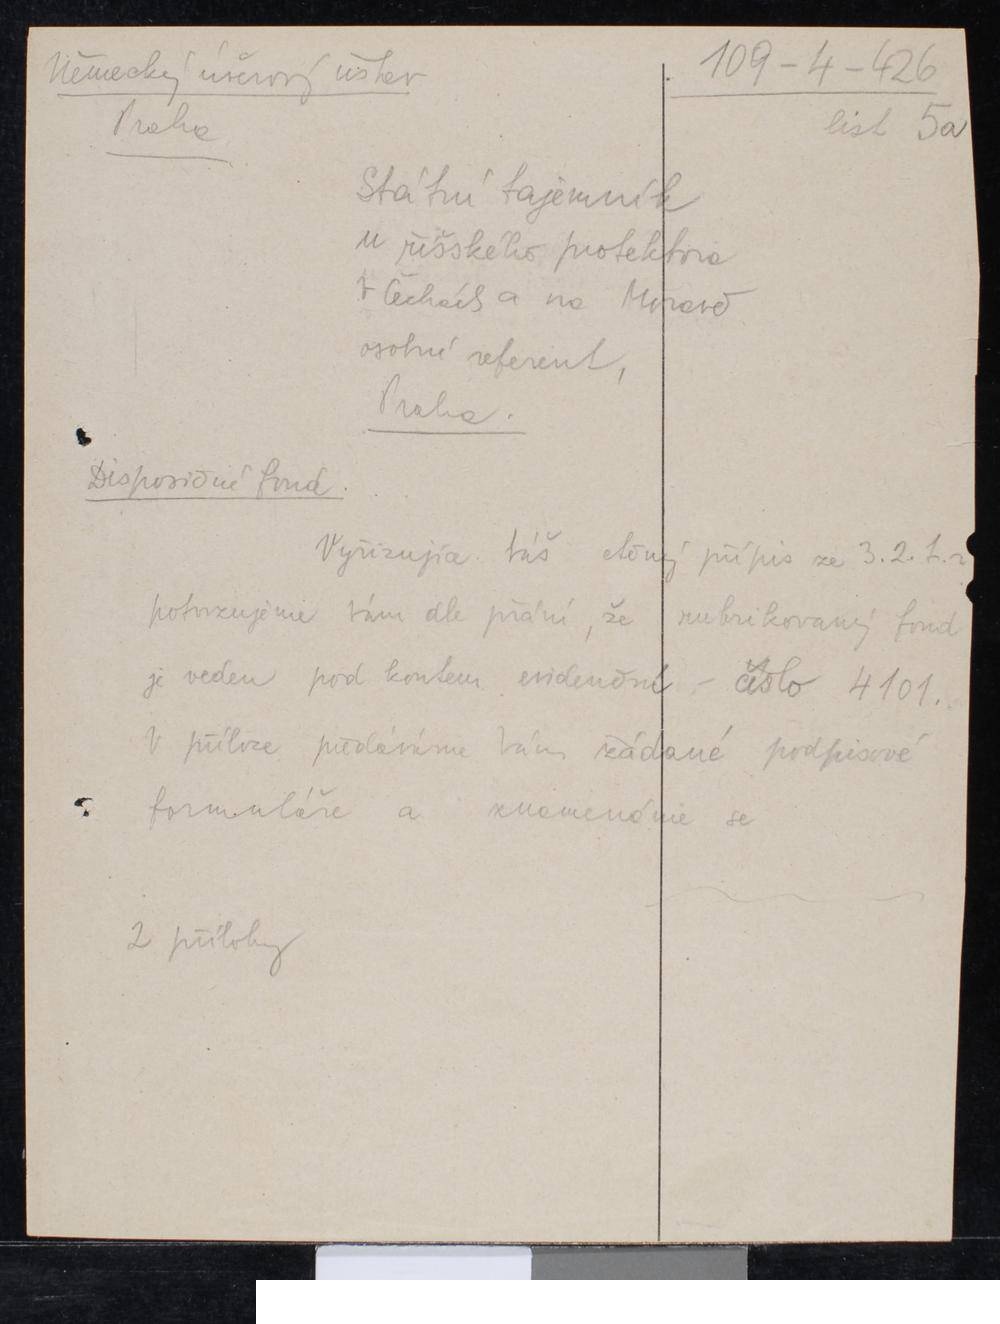 Německý úvěrový ústav
Praha
109-4-426
list 5a
Státní tajemník
u říšského protektora
v Čechách a na Moravě
osobní referent,
Praha.
Disposiční fond.
Vyřizujíce Váš ctěný přípis ze 3.2. t.r.
potvrzujeme Vám dle přání, že rubrikovaný fond
je veden pod kontem evidenční - číslo 4101.
V příloze předáváme Vám žádané podpisové
formuláře a znamenáme se
2 přílohy